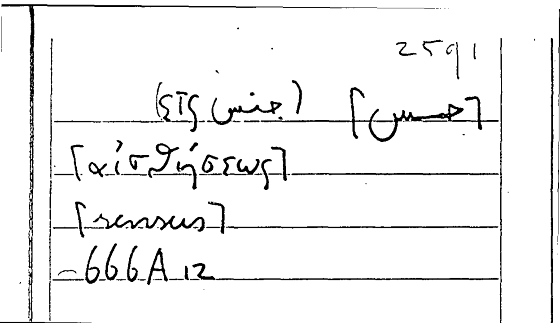 2591
[حس]
[αἰσθήσεως]
[sensus]
-666A 12